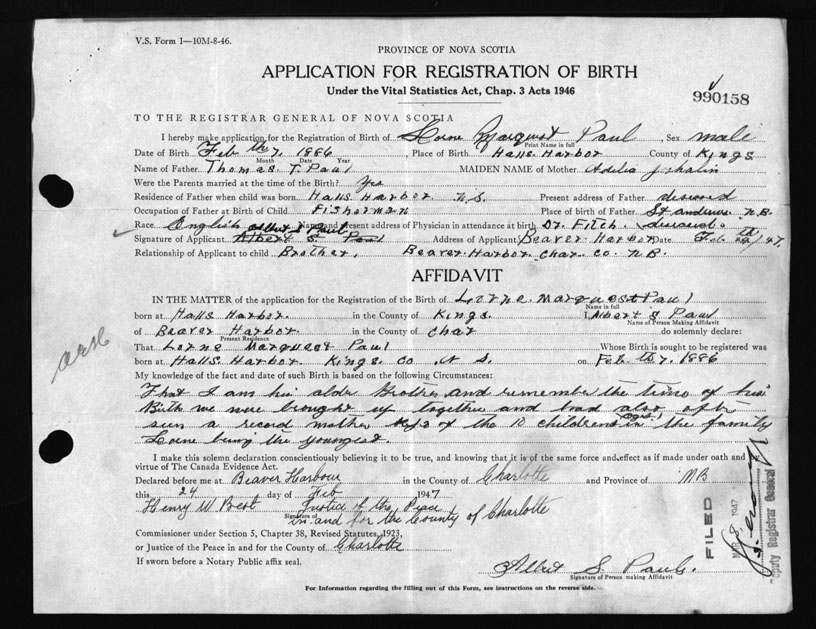 V.S. Form 1—10M-8-46.
PROVINCE OF NOVA SCOTIA
APPLICATION FOR REGISTRATION OF BIRTH
Under the Vital Statistics Act, Chap. 3 Acts 1946
990158
TO THE REGISTRAR GENERAL OF NOVA SCOTIA
I hereby make application for the Registration of Birth of Lorne Marquest Paul Sex male
Print Name in full
Date of Birth Feb th 7, 1886, Place of Birth Halls Harbor County of Kings
Month Date Year
Name of Father Thomas T. Paul MAIDEN NAME of Mother Adelia
Were the Parents married at the time of the Birth? Yes
Residence of Father when child was born Halls Harbor N.S. Present address of Father
Occupation of Father at Birth of Child Fisherman Place of birth of Father St andrews N.B.
Race English Name and present address of Physician in attendance at birth Dr. Fitch.
Albert S Paul
Signature of Applicant Albert S. Paul Address of Applicant Beaver Harbor Date Feb th 24/47.
Relationship of Applicant to child Brother, Beaver Harbor Char. Co. N.B.
AFFIDAVIT
IN THE MATTER of the application for the Registration of the Birth of Lorne Marquest Paul
Name in full
born at Halls Harbor. in the County of Kings I, Albert S Paul
Name of Person Making Affidavit
of Beaver Harbor in the County of Char do solemnly declare:
Present Residence
That Lorne Marquest Paul Whose Birth is sought to be registered was
born at Halls Harbor Kings Co N S. on Feb th 7, 1886
My knowledge of the fact and date of such Birth is based on the following Circumstances:
That I am his older Brother and remember the time of his
Birth we were brought up together and had also often
seen a record mother kept of the 10 childrens ages in the family
Lorne being the youngest.
I make this solemn declaration conscientiously believing it to be true, and knowing that it is of the same force and effect as if made under oath and
virtue of The Canada Evidence Act.
Declared before me at Beaver Harbour in the County of Charlotte and Province of NB
this 24 day of Feb 1947
Henry W Best Justice of the Peace
Signature of
in and for the County of Charlotte
Commissioner under Section 5, Chapter 38, Revised Statutes, 1923,
or Justice of the Peace in and for the County of Charlotte
If sworn before a Notary Public affix seal.
Albert S. Paul.
Signature of Person making Affidavit
For Information regarding the filling out of this Form, see instructions on the reverse side.
FILED
MAR 8 1947
Deputy Registrar General